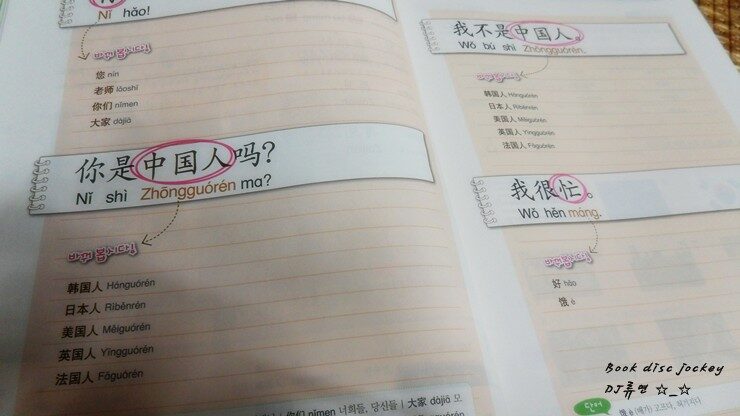 Nǐ hǎo!
바꿔 봅시다!
您 nín
老师 lǎoshī
你们 nǐmen
大家 dàjiā
你是中国人吗?
Nǐ shì Zhōngguórén ma?
바꿔 봅시다!
韩国人 Hánguórén
日本人 Rìběnrén
美国人 Měiguórén
英国人 Yīngguórén
法国人 Fǎguórén
nǐmen 너희들, 당신들 | 大家 dàjiā 모
我不是中国人。
Wǒ bú shì Zhōngguórén.
바꿔 봅시다!
韩国人 Hánguórén
日本人 Rìběnrén
美国人 Měiguórén
英国人 Yīngguórén
法国人 Fǎguórén
我很忙。
Wǒ hěn máng.
바꿔 봅시다!
好 hǎo
饿 è
단어
Book disc jockey
DJ류연 ☆_☆